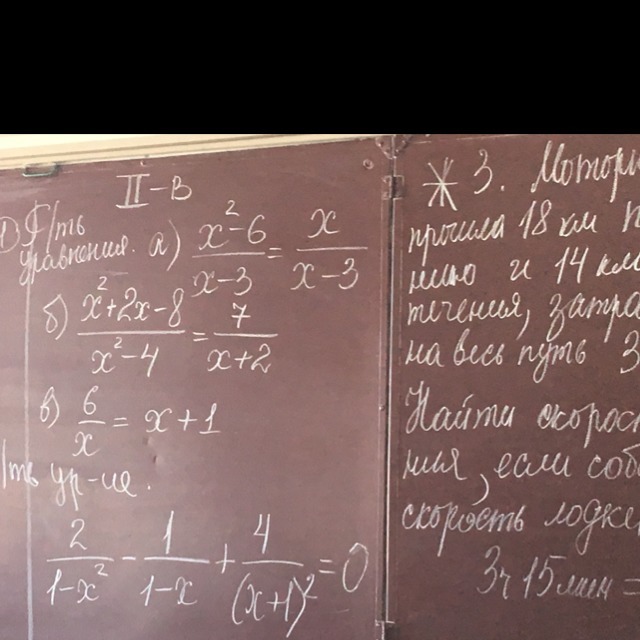 II-В
1) Р/ть
уравнения. а) (x²-6)/(x-3) = x/(x-3)
б) (x²+2x-8)/(x²-4) = 7/(x+2)
в) 6/x = x+1
/ть ур-ие.
2/(1-x²) - 1/(1-x) + 4/(x+1)² = 0
Ж 3. Мотор
прошла 18 км
нию и 14 км
течения, затра
на весь путь 3
Найти скорос
ния, если соб
скорость лодк
3ч 15 мин =